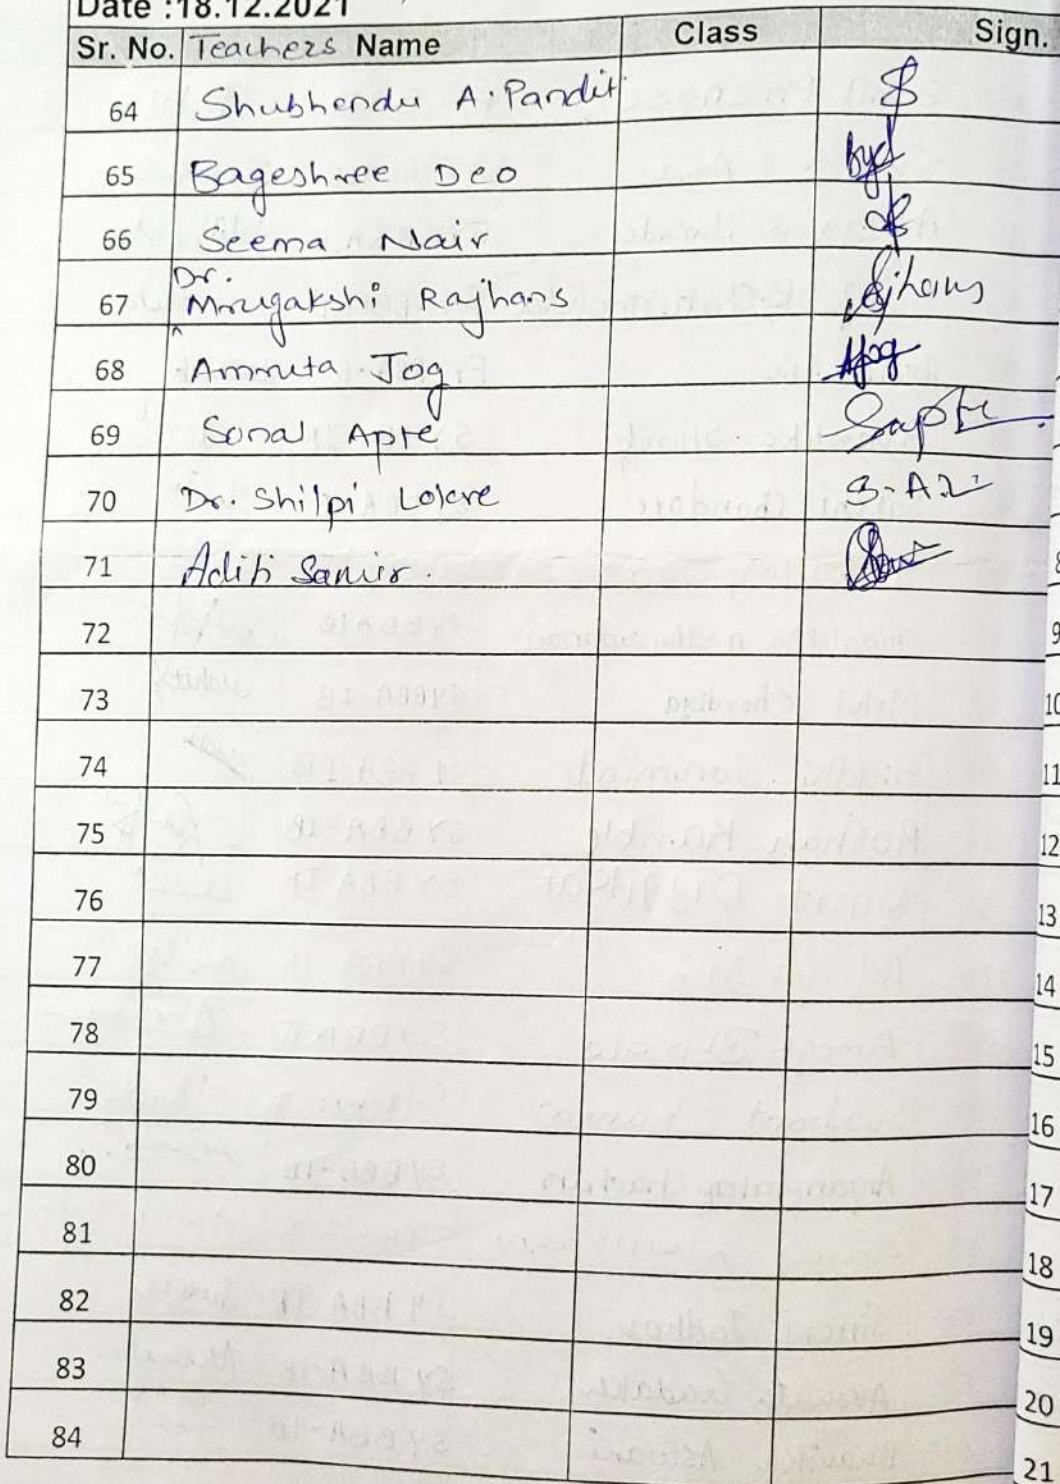 Date :18.12.2021
Sr. No. Teachers Name Class Sign.
64 Shubhendu A. Pandit
65 Bageshree Deo
66 Seema Nair
Dr.
67 Mrugakshi Rajhans
68 Amruta Jog
69 Sonal Apte Sapte
70 Dr. Shilpi Lokre
71 Aditi Samir.
72
73
74
75
76
77
78
79
80
81
82
83
84
9
10
11
12
13
14
15
16
17
18
19
20
21